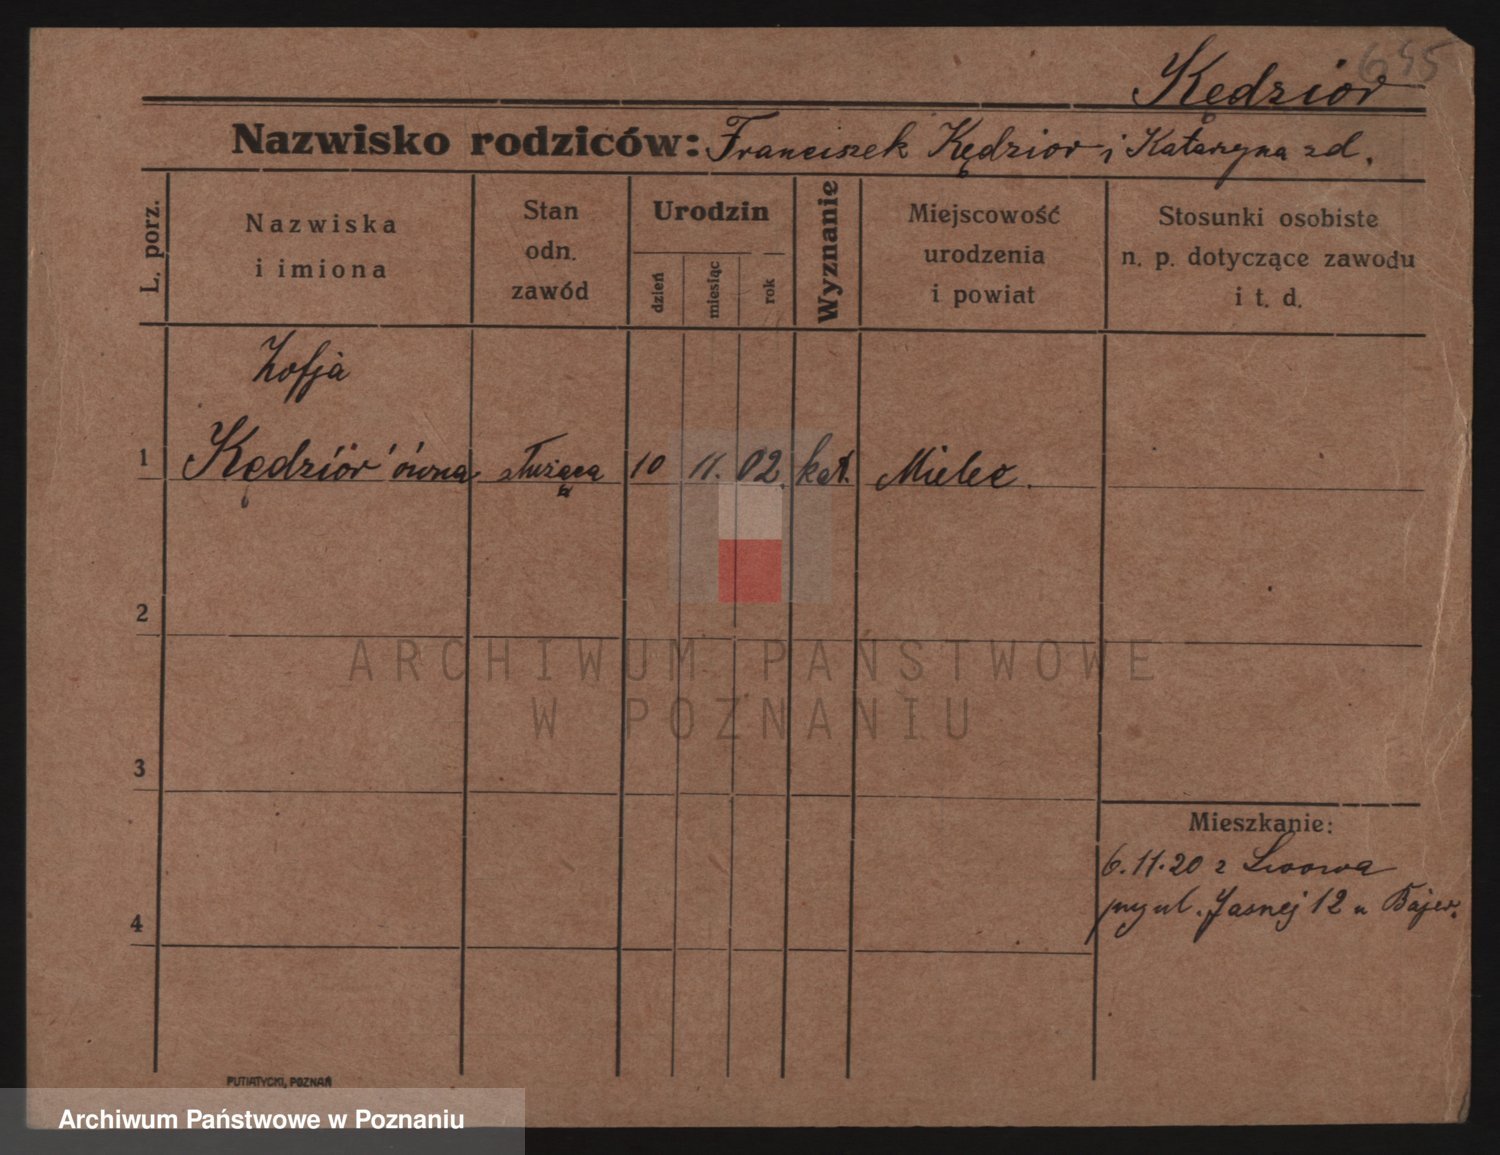 645
Kędzior
Nazwisko rodziców: Franciszek Kędzior i Katarzyna zd.
L. porz.
Nazwiska
i imiona
Stan
odn.
zawód
Urodzin
dzień
miesiąc
rok
Wyznanie
Miejscowość
urodzenia
i powiat
Stosunki osobiste
n. p. dotyczące zawodu
i t. d.
Zofja
1 Kędziór'ówna służąca 10 11. 02. kat. Mielec.
2
3
4
Mieszkanie:
6.11.20 z Lwowa
przy ul. Jasnej 12 u Bajer.
PUTIATYCKI, POZNAŃ
ARCHIWUM PAŃSTWOWE
W POZNANIU
Archiwum Państwowe w Poznaniu